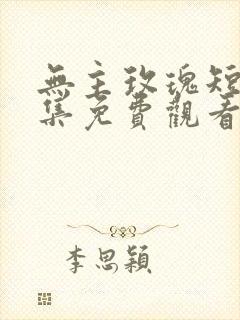 無主玫瑰短
集免費觀看
李思穎